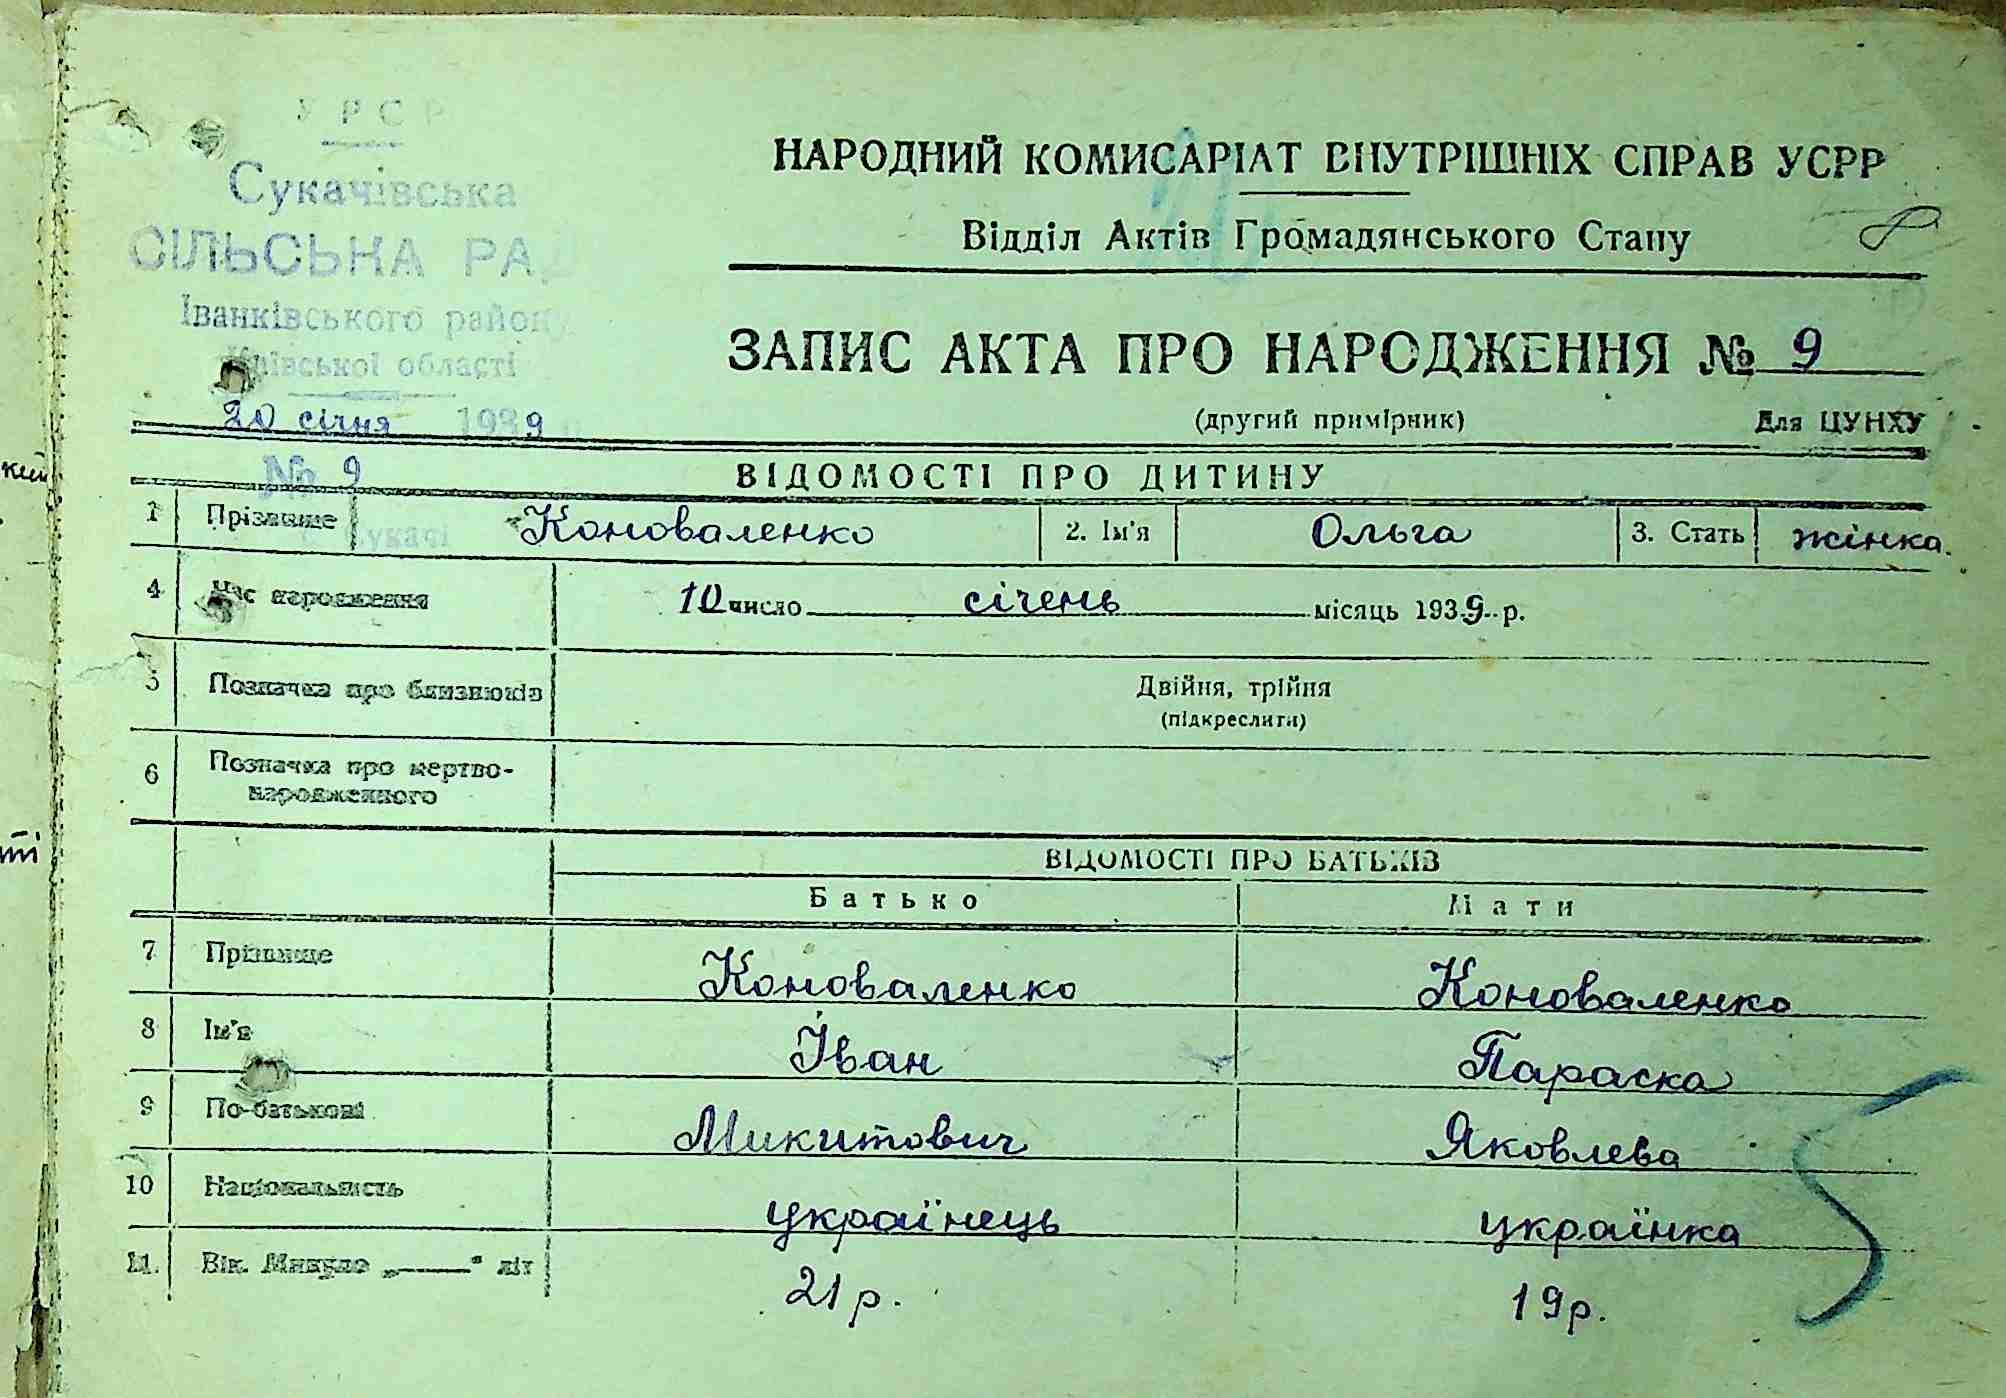 УРСР
Сукачівська
СІЛЬСЬКА РАДА
Іванківського району
Київської області
20 січня 1939 р.
№ 9
с. Сукачі
НАРОДНИЙ КОМИСАРІАТ ВНУТРІШНІХ СПРАВ УСРР
Відділ Актів Громадянського Стану
8
ЗАПИС АКТА ПРО НАРОДЖЕННЯ № 9
(другий примірник) Для ЦУНХУ
ВІДОМОСТІ ПРО ДИТИНУ
1 Прізвище Коноваленко 2. Ім'я Ольга 3. Стать жінка.
4 Час народження 10 число січень місяць 1939 р.
5 Позначка про близнюків Двійня, трійня
(підкреслити)
6 Позначка про мертво-
народженного
ВІДОМОСТІ ПРО БАТЬКІВ
Батько Мати
7 Прізвище Коноваленко Коноваленко
8 Ім'я Іван Параска
9 По-батькові Микитович Яковлева
10 Національність українець українка
11. Вік. Минуло „——" літ 21 р. 19 р.